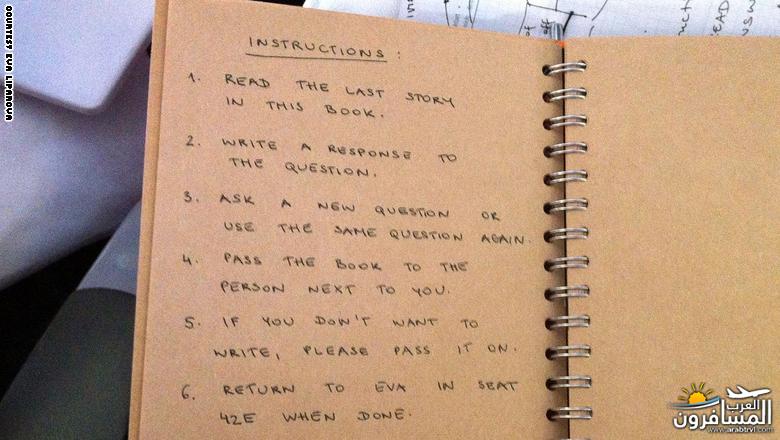 COURTESY EVA LIPAROVA
INSTRUCTIONS :
1. READ THE LAST STORY
IN THIS BOOK.
2. WRITE A RESPONSE TO
THE QUESTION.
3. ASK A NEW QUESTION OR
USE THE SAME QUESTION AGAIN.
4. PASS THE BOOK TO THE
PERSON NEXT TO YOU.
5. IF YOU DON'T WANT TO
WRITE, PLEASE PASS IT ON.
6. RETURN TO EVA IN SEAT
42E WHEN DONE.
العرب
المسافرون
www.arabtrvl.com